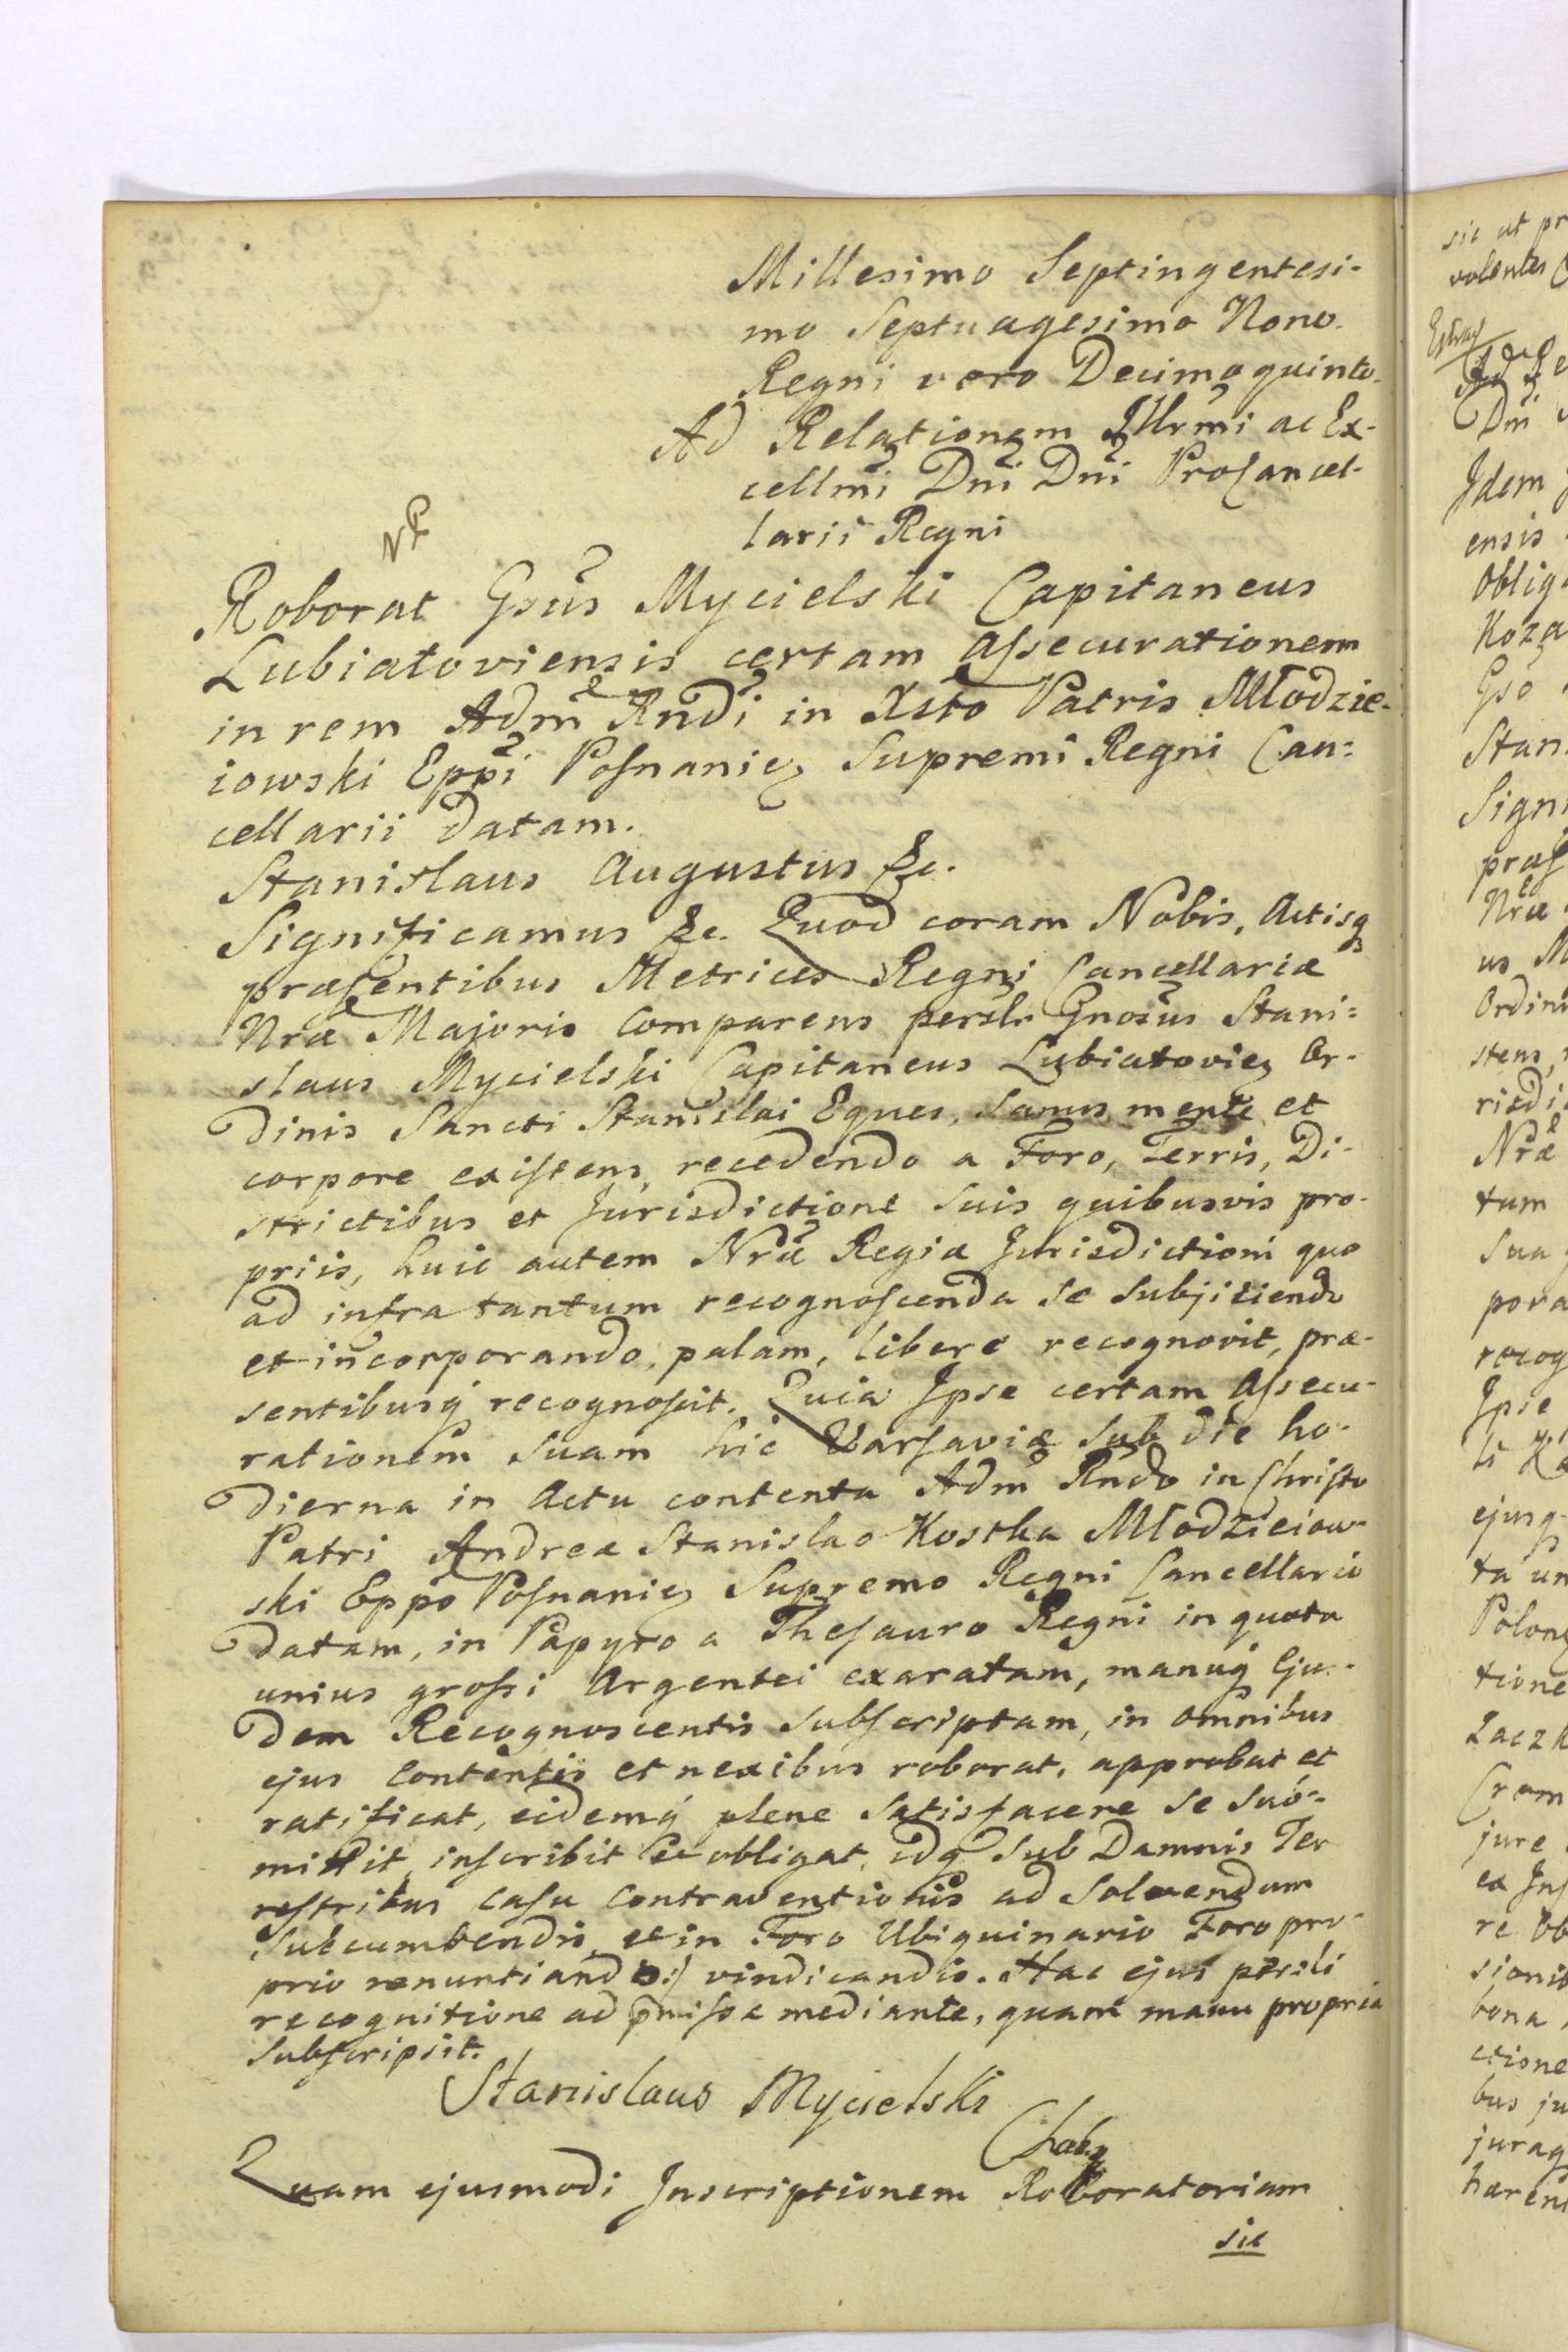 Millesimo Septingentesi-
mo Septuagesimo Nono.
Regni vero Decimoquinto.
Ad Relationem Illrmi ac Ex-
cellmi Dni Dni ProCancel-
larii Regni
Roborat Gsus Mycielski Capitaneus
Lubiatoviensis certam Assecurationem
in rem Adm Rndi in Xsto Patris Młodzie-
iowski Eppi Posnanien Supremi Regni Can=
cellarii datam.
Stanislaus Augustus &c.
Significamus &c. Quod coram Nobis, Actisq
præsentibus Metrices Regni Cancellariæ
Nræ Majoris Comparens persLr Gnosus Stani=
slaus Mycielski Capitaneus Lubiatovien Or-
dinis Sancti Stanislai Eques, sanus mente et
corpore existens, recedendo a Foro, Terris, Di-
strictibus et Jurisdictione suis quibusvis pro-
priis, huic autem Nræ Regiæ Jurisdictioni quo
ad infra tantum recognoscenda se subjiciendo
et incorporando, palam, libere recognovit, præ-
sentibusq recognoscit. Quia Ipse certam Assecu-
rationem suam hic Varsaviæ sub die ho-
dierna in Actu contenta Adm Rndo in Christo
Patri Andreæ Stanislao Kostka Młodzieiow-
ski Eppo Posnanien Supremo Regni Cancellario
datam, in Papyro a Thesauro Regni in quota
unius grossi Argentei exaratam, manuq Eju-
dem Recognoscentis subscriptam, in omnibus
ejus Contentis et nexibus roborat, approbat et
ratificat, eidemq plene satisfacere se sub-
mittit, inscribit et obligat, idq sub Damnis Ter
restribus casu Contraventionis ad solvendum
succumbendis, et in Foro Ubiquinario Foro pro-
prio renuntiando :/ vindicandis. Hac ejus persli
recognitione ad pmissa mediante, quam manu propria
subscripsit.
Stanislaus Mycielski
Quam ejusmodi Inscriptionem Roboratoriam
sic